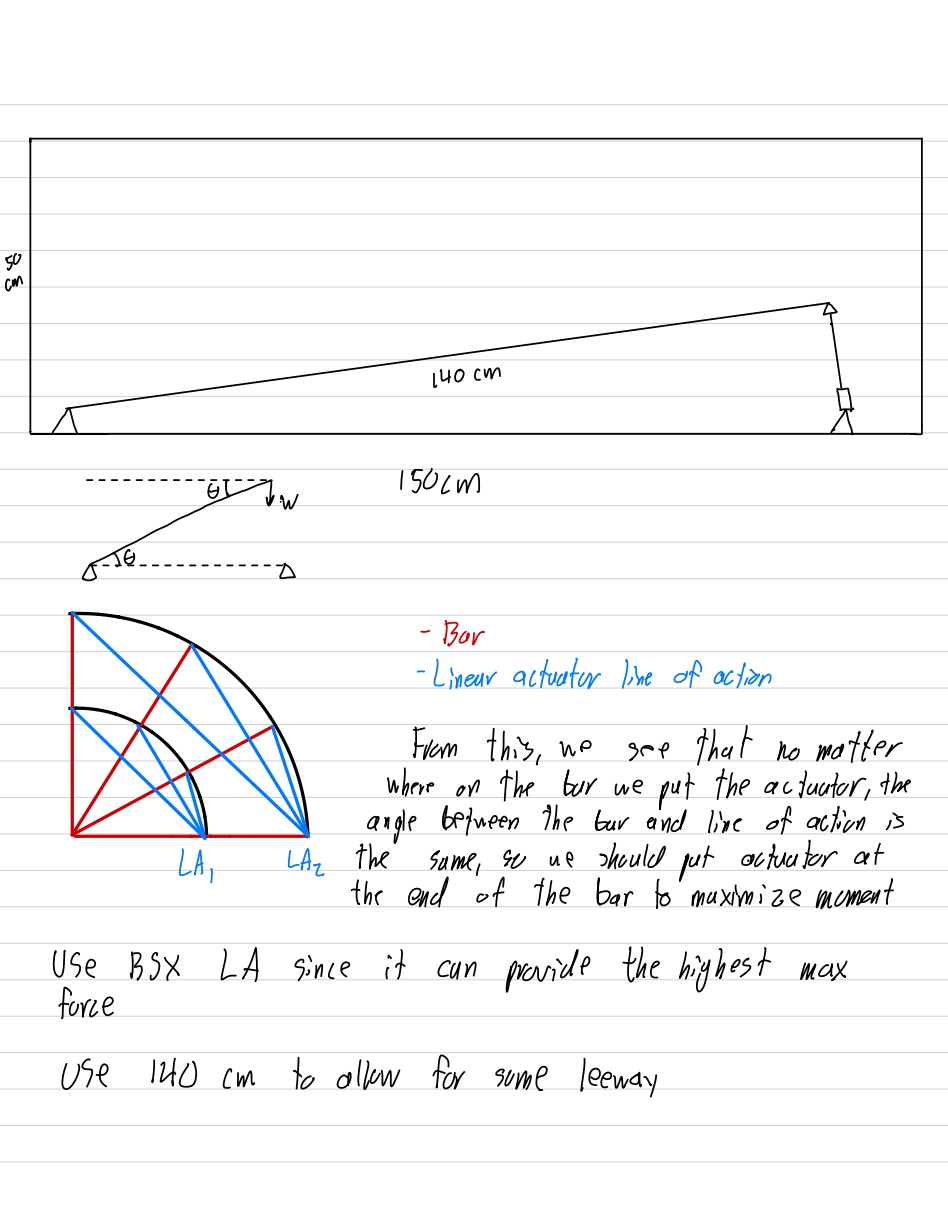 50
cm
140 cm
θ
W
θ
150cm
- Bar
- Linear actuator line of action
From this, we see that no matter
where on the bar we put the actuator, the
angle between the bar and line of action is
the same, so we should put actuator at
the end of the bar to maximize moment
LA₁ LA₂
Use BSX LA since it can provide the highest max
force
Use 140 cm to allow for some leeway